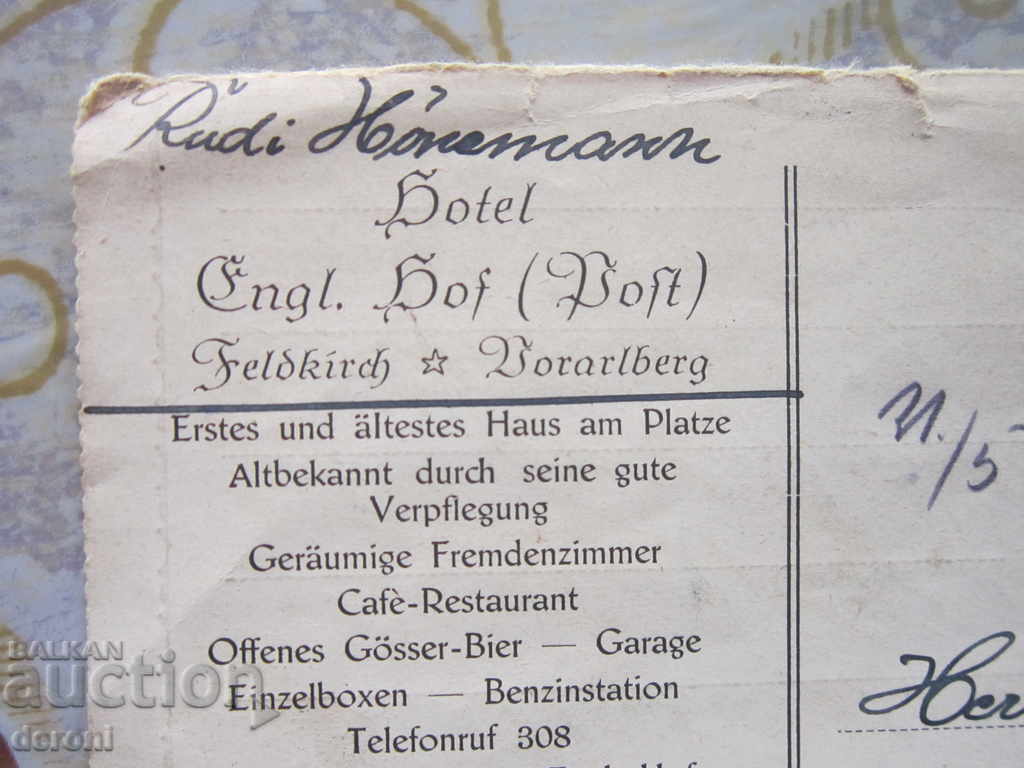 Rudi Hönemann
Hotel
Engl. Hof (Post)
Feldkirch ☆ Vorarlberg
Erstes und ältestes Haus am Platze
Altbekannt durch seine gute
Verpflegung
Geräumige Fremdenzimmer
Cafè-Restaurant
Offenes Gösser-Bier — Garage
Einzelboxen — Benzinstation
Telefonruf 308
Her
BALKAN
auction
deroni